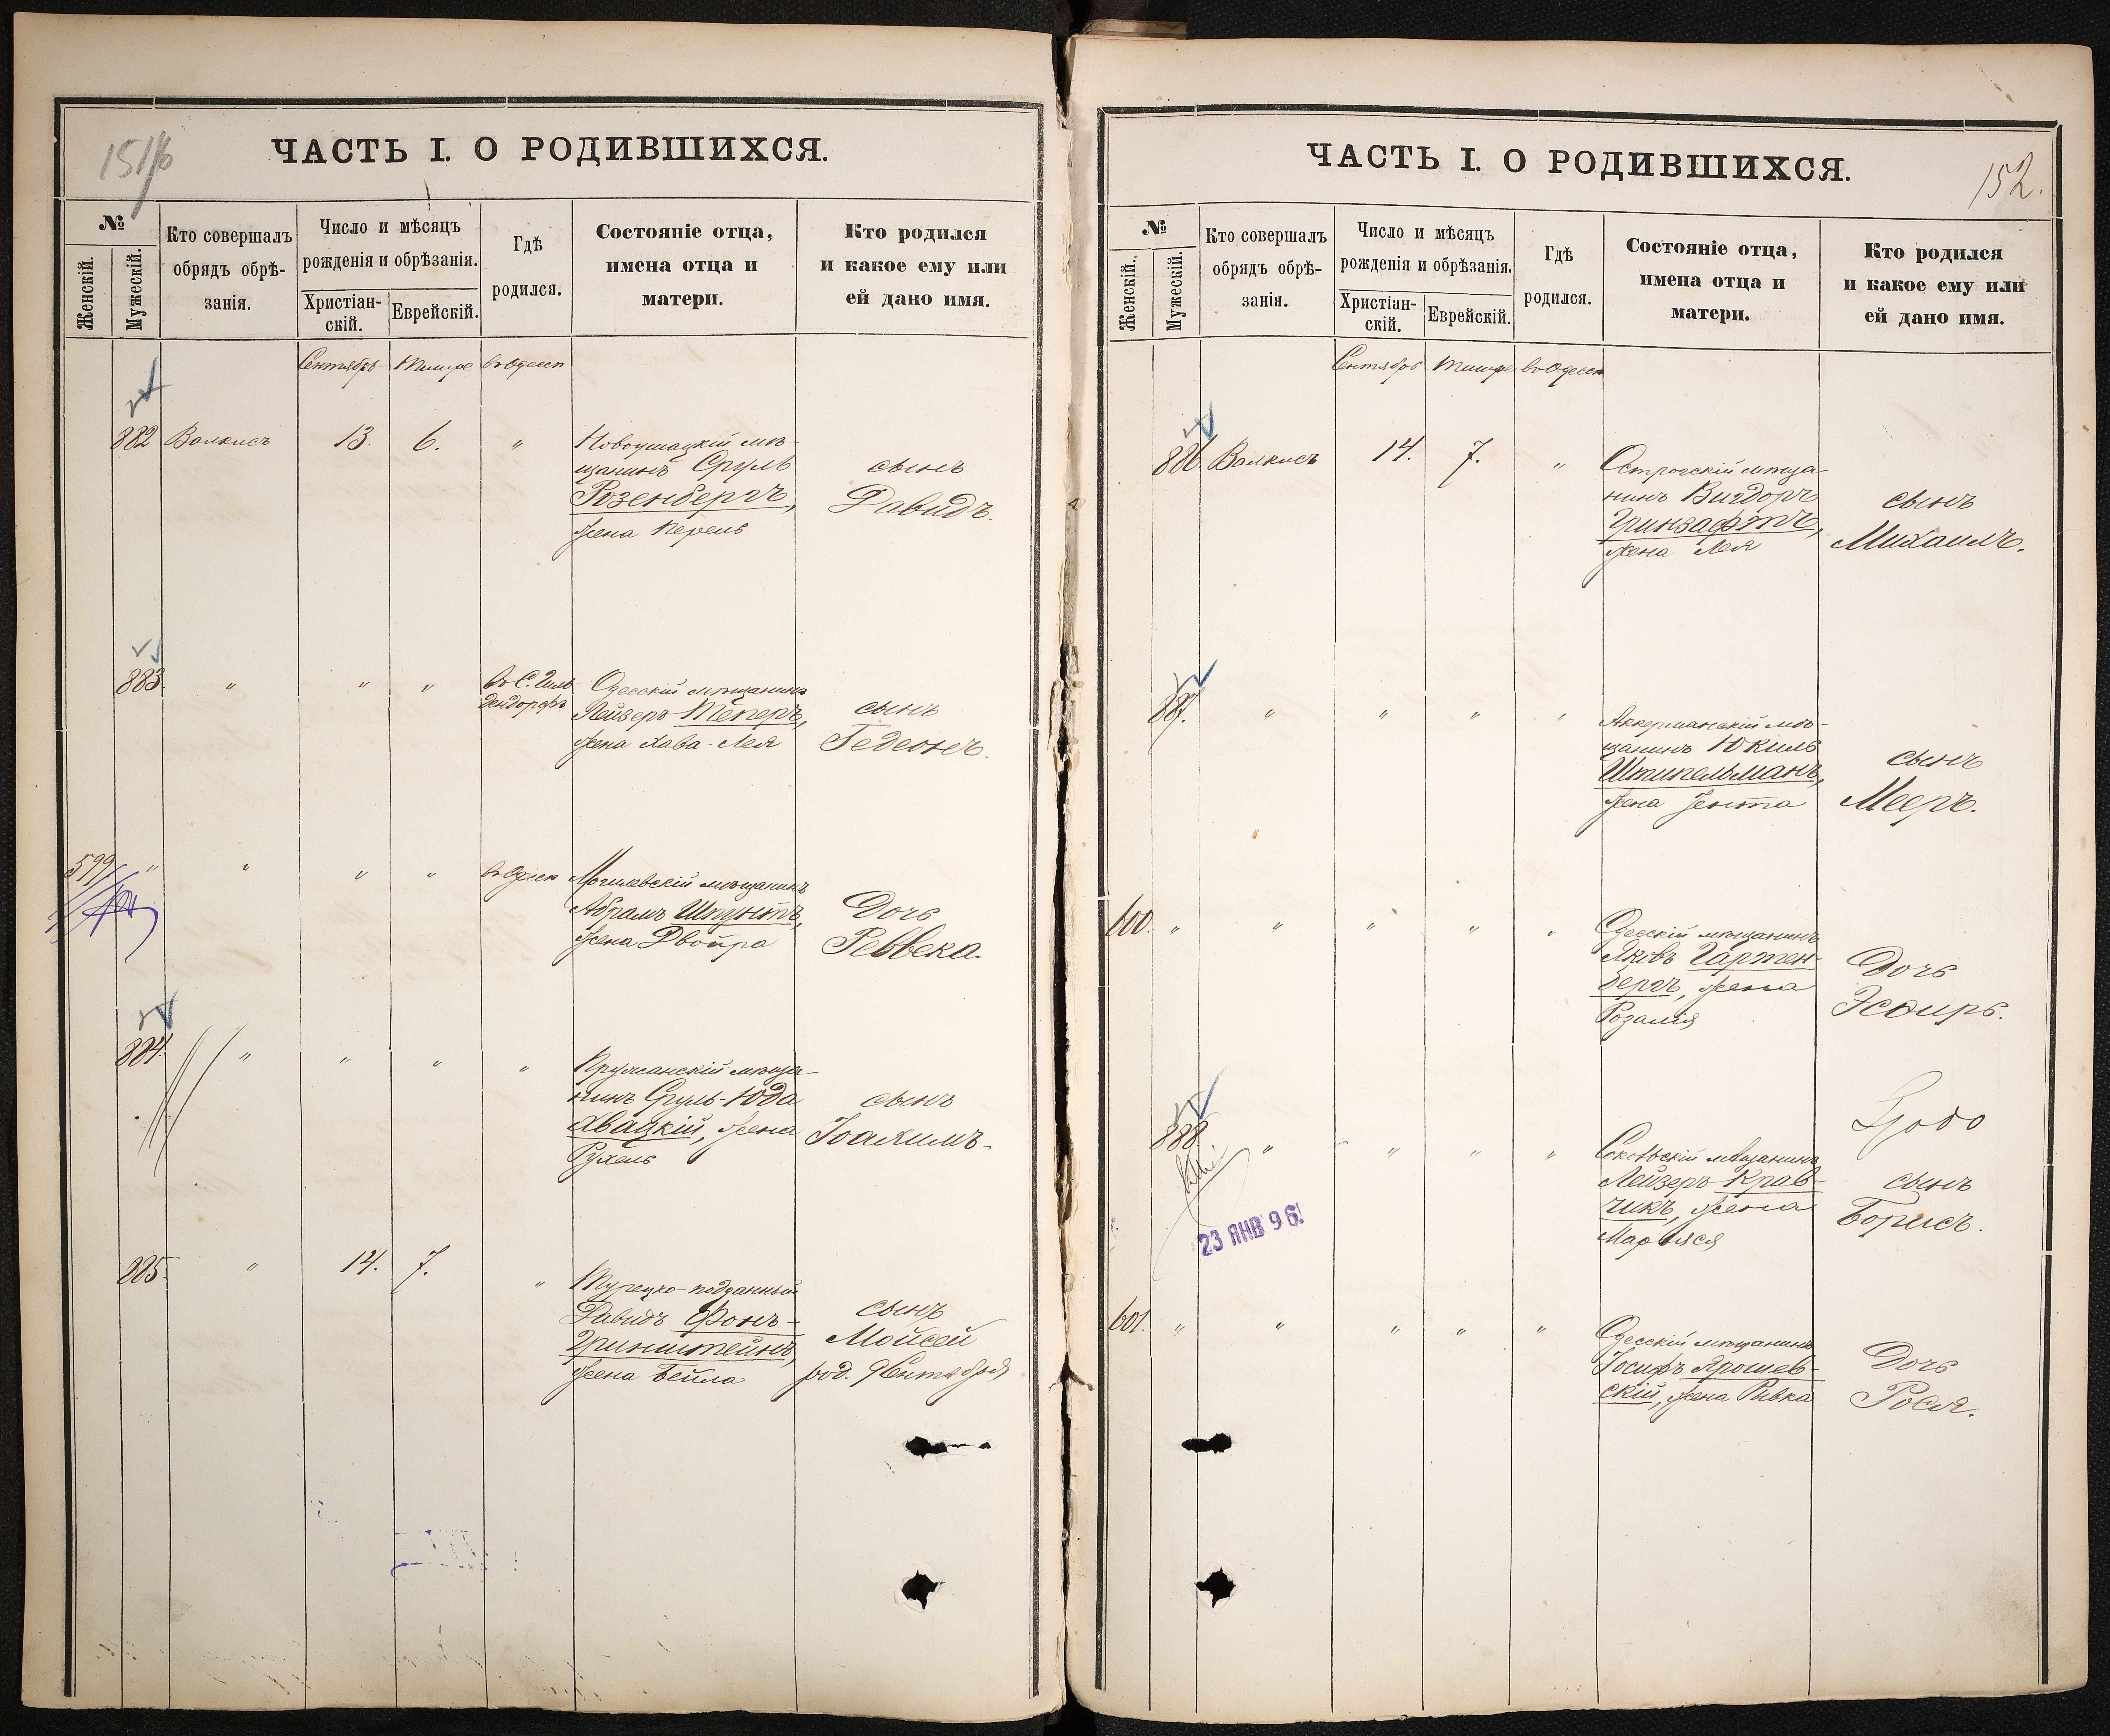 151/б
ЧАСТЬ I. О РОДИВШИХСЯ.
№
Женскій.
Мужескій.
Кто совершалъ
обрядъ обрѣ-
занія.
Число и мѣсяцъ
рожденія и обрѣзанія.
Христіан-
скій.
Еврейскій.
Гдѣ
родился.
Состояніе отца,
имена отца и
матери.
Кто родился
и какое ему или
ей дано имя.
Сентябрь Тишре въ Одессѣ
882 Валкисъ 13. 6. "
Новоушацкій мѣ-
щанинъ Сруль
Розенбергъ,
жена Перель
сынъ
Давидъ.
883. " " "
въ С. Гиль-
дендорфѣ
Одесскій мѣщанинъ
Лейзеръ Теперъ,
жена Хава-Лея
сынъ
Гедеонъ.
599 " " " " въ Одессѣ
Могилевскій мѣщанинъ
Абрамъ Шпунтъ,
жена Двойра
Дочь
Реввека.
884. " " " "
Пружанскій мѣща-
нинъ Сруль-Юда
Хвацкій, жена
Рухель
сынъ
Іоахимъ.
885. " 14. 7. "
Турецко-подданный
Давидъ Фонъ-
Гринштейнъ,
жена Бейла
сынъ
Мойсей
род. 9 Сентября
152.
ЧАСТЬ I. О РОДИВШИХСЯ.
№
Женскій.
Мужескій.
Кто совершалъ
обрядъ обрѣ-
занія.
Число и мѣсяцъ
рожденія и обрѣзанія.
Христіан-
скій.
Еврейскій.
Гдѣ
родился.
Состояніе отца,
имена отца и
матери.
Кто родился
и какое ему или
ей дано имя.
Сентябрь Тишре въ Одессѣ
886. Валкисъ 14. 7. "
Острогскій мѣща-
нинъ Вигдоръ
Гринзафтъ,
жена Лея
сынъ
Михаилъ.
887. " " " "
Аккерманскій мѣ-
щанинъ Юкиль
Штипельманъ,
жена Јента
сынъ
Мееръ.
600. " " " " "
Одесскій мѣщанинъ
Яковъ Гартен-
бергъ, жена
Розалія
Дочь
Эсѳирь.
888. " " " "
мѣщанинъ
Лейзеръ Крав-
чикъ, жена
Марьяся
сынъ
Борисъ.
23 ЯНВ 96
601. " " " " "
Одесскій мѣщанинъ
Іосифъ Ярошев-
скій, жена Ривка
Дочь
Рося.